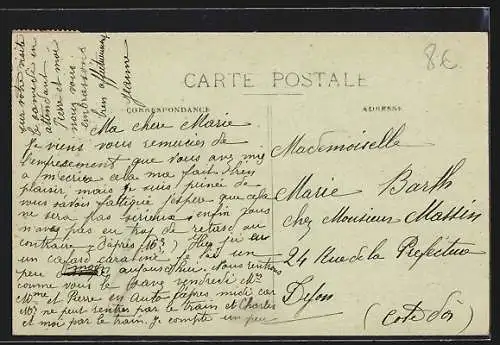 8€
CARTE POSTALE
CORRESPONDANCE
ADRESSE
Ma chere Marie
Je viens vous remercier de
l'empressement que vous avez mis
a m'ecrire cela ma fait bien
plaisir, mais je suis peinée de
vous savoir fatiguée j'espère que cela
ne sera pas serieux enfin vous
n'avez pas eu trop de retard au
contraire (d'après
un cafard
peu aujourd'hui. Nous rentrons
comme vous le savez vendredi Mr
Mme et Pierre en auto l'après midi car
Mr ne peut rentrer par le train et Charles
et moi par le train. Je compte un peu
sur votre visite
le samedi en
attendant
Pierre et moi
nous vous
embrassons
bien affectueusement
Jeanne
Mademoiselle
Marie Barth
chez Monsieur Massin
24 Rue de la Prefecture
Dijon
(Cote d'or)